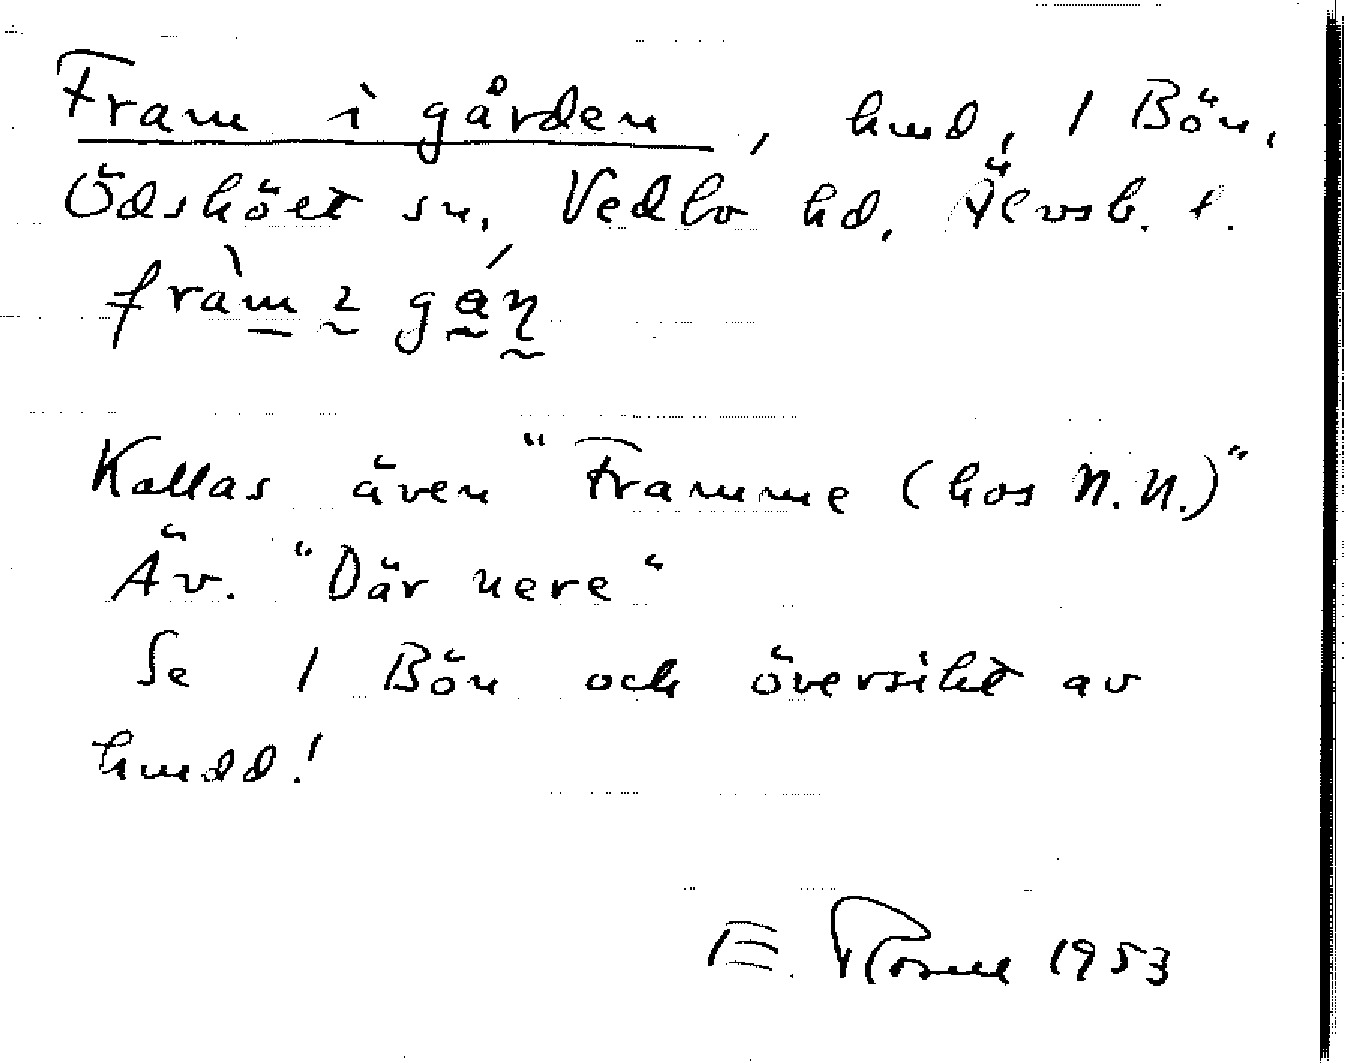 Fram i gården, hmd, 1 Bön,
Ödsköet sn, Vedbo hd, Älvsb. l.
Kallas även "Framme (hos N.N.)"
Äv. "Där nere"
Se 1 Bön och översikt av
hmdd!
E. 1953